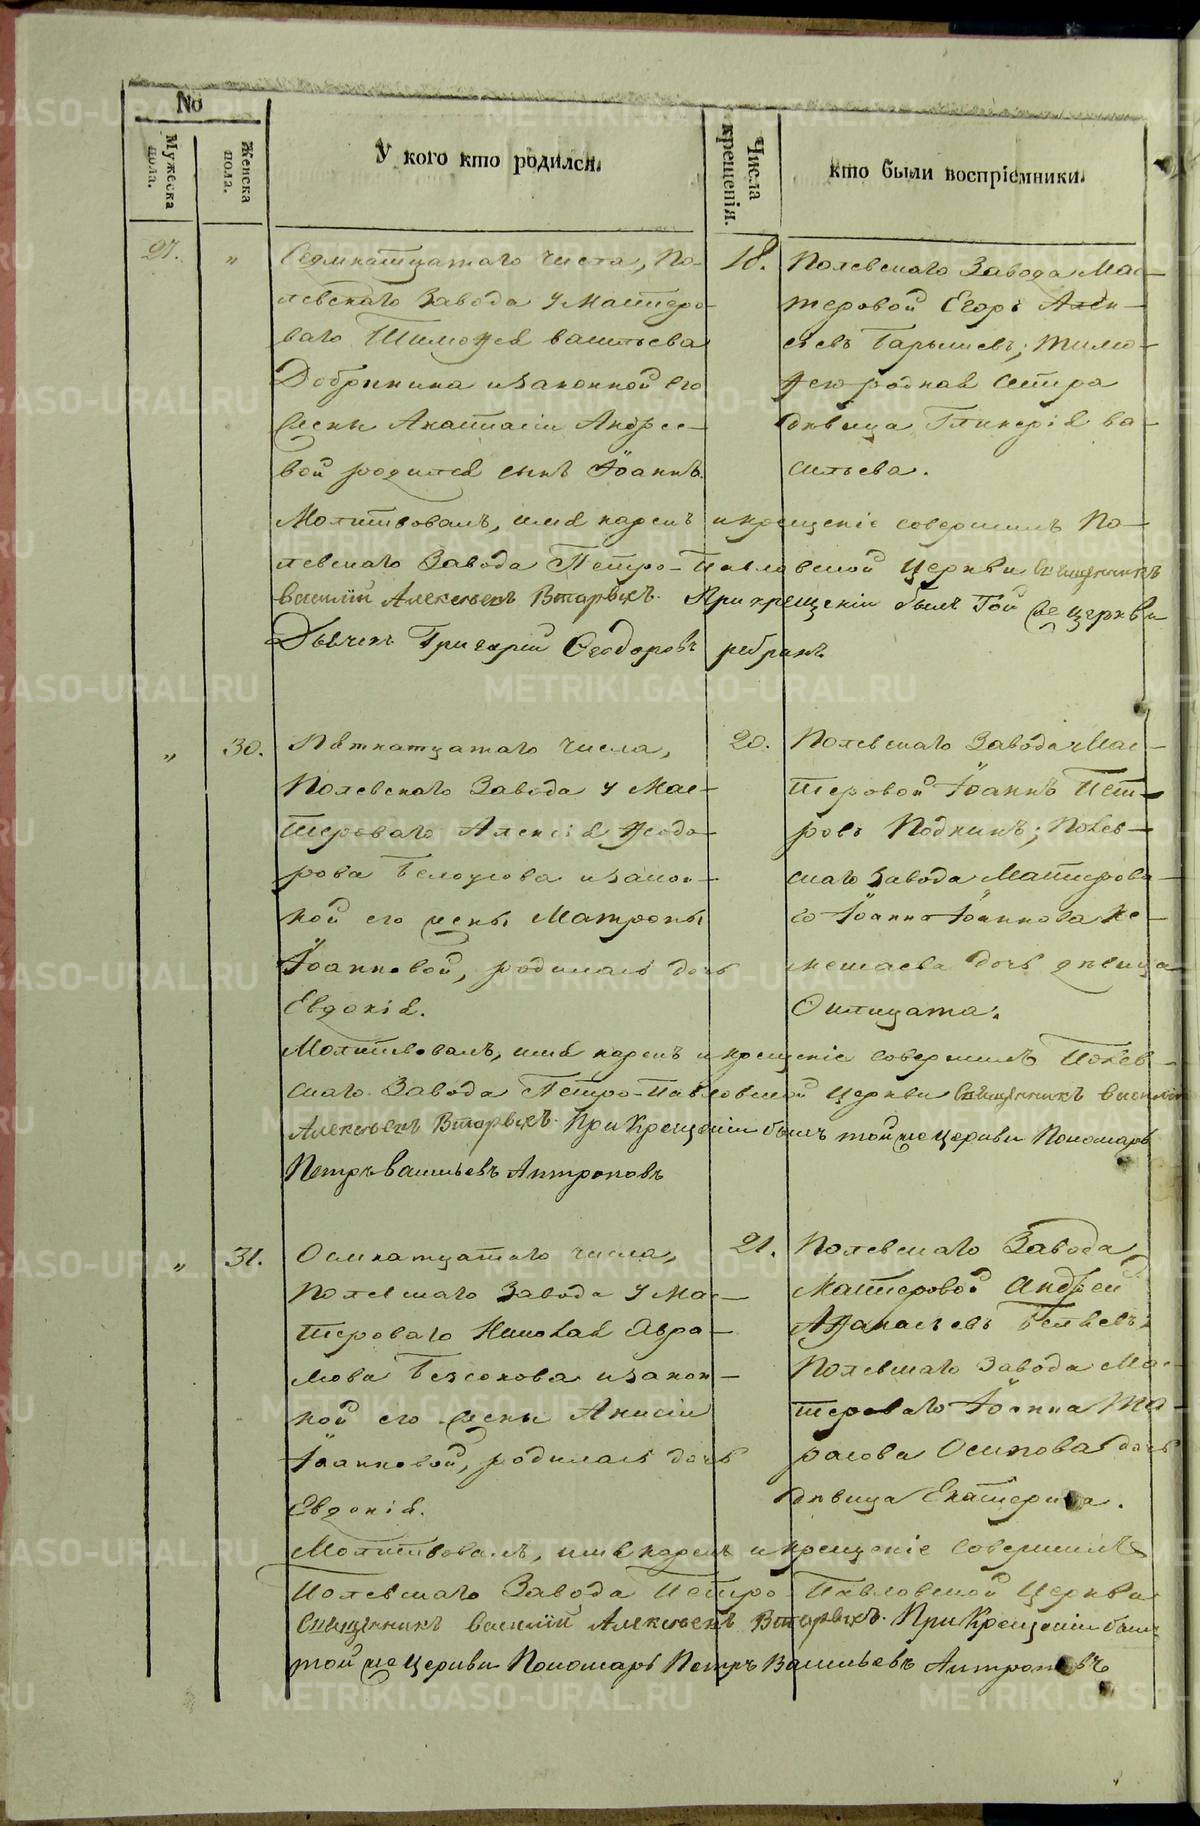 №
Мужеска пола.
Женска пола.
У кого кто родился.
Числа крещенія.
кто были воспріемники.
27. „ Седмнатцатаго числа, По-
левскаго Завода у Мастеро-
ваго Тимофея Васильева
Добрынина и законной его
жены Анастасіи Андрее-
вой родился сынъ Іоаннъ.
18. Полевскаго Завода Мас-
теровой Егоръ Алек-
сеевъ Барышевъ; Тимо-
фею родная сестра
дѣвица Гликерія Ва-
сильева.
Молитвовалъ, имя нарекъ и крещеніе совершилъ По-
левскаго Завода Петро-Павловской Церкви Священникъ
Василій Алексѣевъ Вторыхъ. При крещеніи былъ той же церкви
Дьячекъ Григорій Ѳеодоровъ
„ 30. Пятнатцатаго числа,
Полевскаго Завода у Мас-
тероваго Алексія Ѳеодо-
рова Белоусова и закон-
ной его жены Матроны
Іоанновой, родилась дочь
Евдокія.
20. Полевскаго Завода Мас-
теровой Іоаннъ Пет-
ровъ Подкинъ; Полев-
скаго Завода Мастерова-
го Іоанна Іоаннова Ке-
мешаева дочь дѣвица
Молитвовалъ, имя нарекъ и крещеніе совершилъ Полев-
скаго Завода Петро-Павловской Церкви Священникъ Василій
Алексѣевъ Вторыхъ. При Крещеніи былъ той же Церкви Пономарь
Петръ Васильевъ Антроповъ
„ 31. Осмнатцатаго числа,
Полевскаго Завода у Мас-
тероваго Николая Авра-
мова Безсонова и закон-
ной его жены Анисіи
Іоанновой, родилась дочь
Евдокія.
21. Полевскаго Завода
Мастеровой Андрей
Афанасьевъ Беляевъ;
Полевскаго Завода Мас-
тероваго Іоанна Та-
расова Осипова дочь
дѣвица Екатерина.
Молитвовалъ, имя нарекъ и крещеніе совершилъ
Полевскаго Завода Петро Павловской Церкви
Священникъ Василій Алексѣевъ Вторыхъ. При Крещеніи былъ
той же Церкви Пономарь Петръ Васильевъ Антроповъ